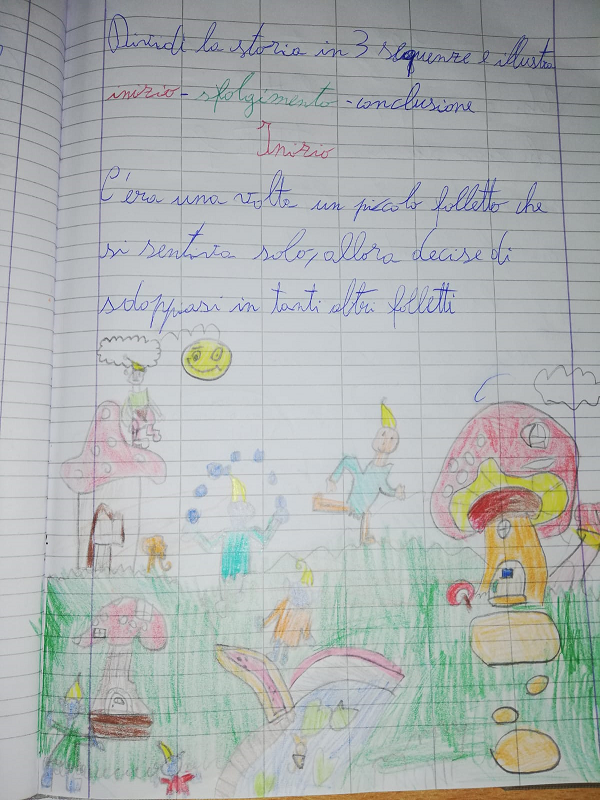 Dividi la storia in 3 sequenze e illustra
inizio - sfolgimento - conclusione
Inizio
C'era una volta un piccolo folletto che
si sentiva solo, allora decise di
sdoppiasi in tanti altri folletti